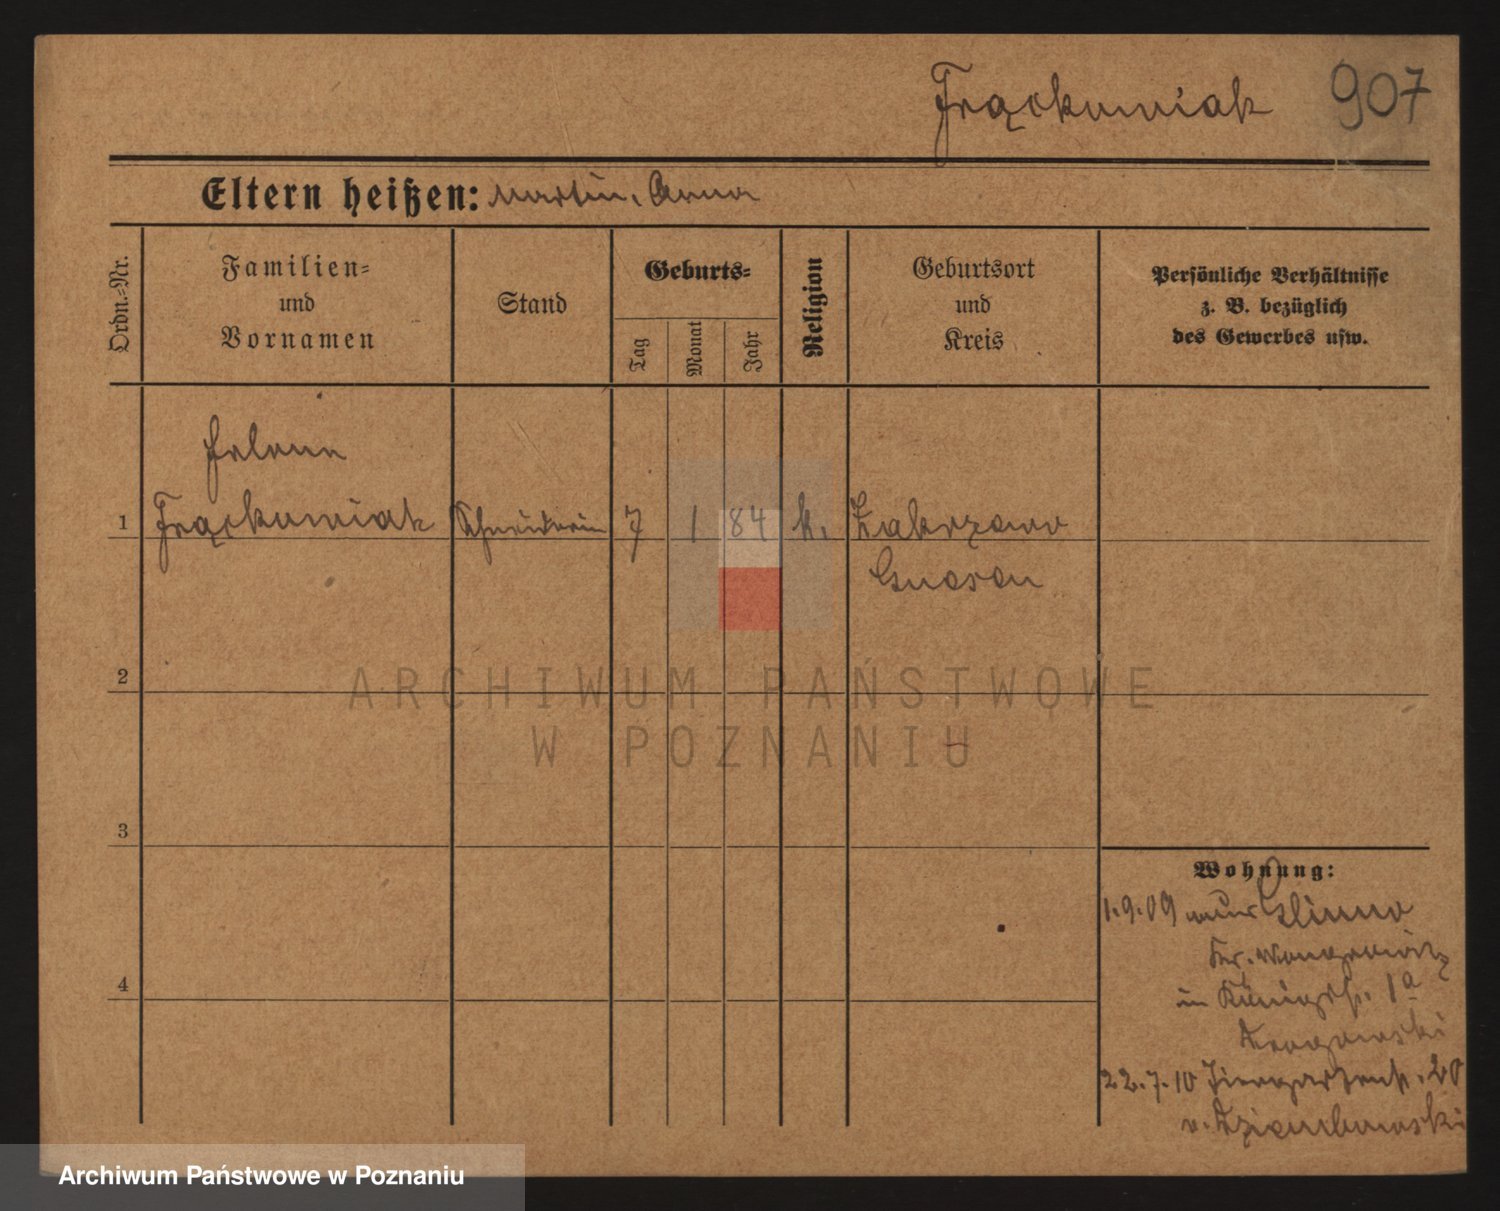 Frąckowiak 907
Eltern heißen: Martin, Anna
Ordn.-Nr.
Familien-
und
Vornamen
Stand
Geburts-
Tag
Monat
Jahr
Religion
Geburtsort
und
Kreis
Persönliche Verhältnisse
z. B. bezüglich
des Gewerbes usw.
Helene
1 Frąckowiak Schneiderin 7 1 84 k. Zakrzewo
Gnesen
2
ARCHIWUM PAŃSTWOWE
W POZNANIU
3
Wohnung:
1.9.09 aus Glinno
Kr. Wongrowitz
4
in Königstr. 1a
22.7.10 Tiergartenstr. 20
v. Dziembowski
Archiwum Państwowe w Poznaniu